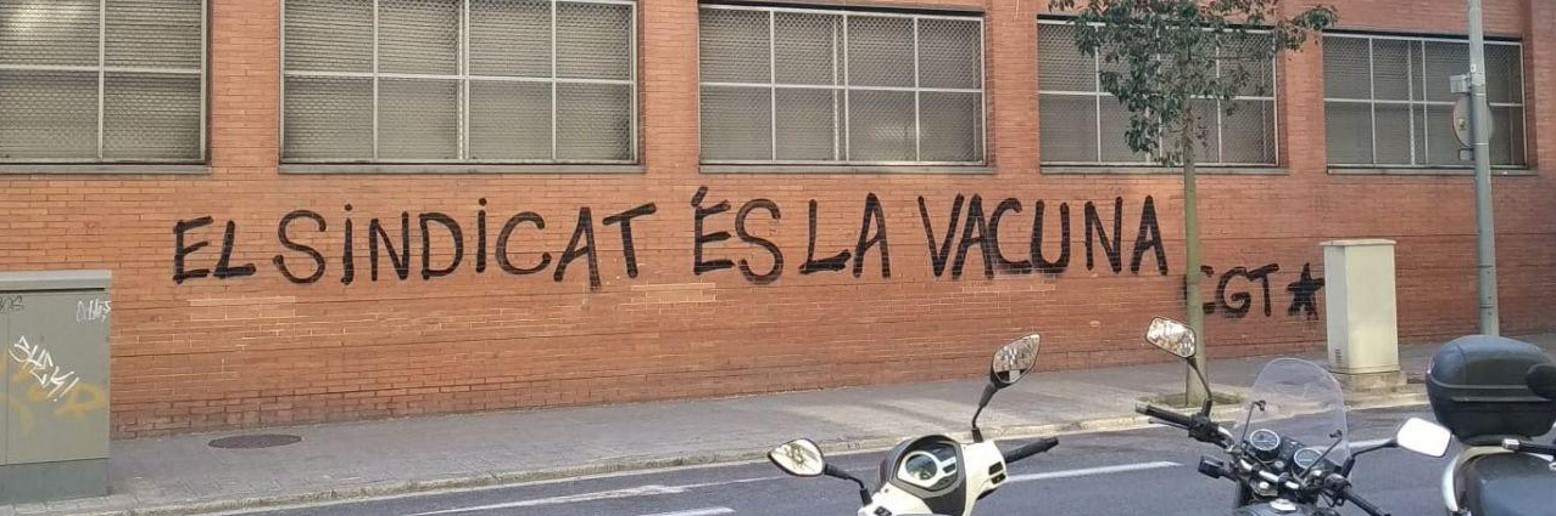 EL SiNDiCAT ÉS LA VACUNA
CGT★
SHEM!